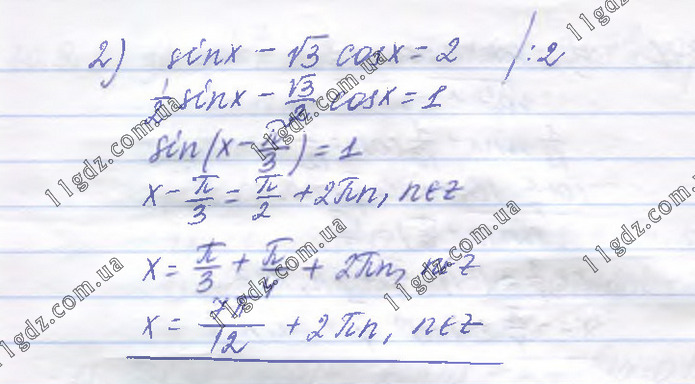 2) sinx - √3 cosx = 2 /:2
1/2 sinx - √3/2 cosx = 1
sin(x - π/3) = 1
x - π/3 = π/2 + 2πn, n∈z
x = π/3 + π/4 + 2πn, n∈z
x = 7π/12 + 2πn, n∈z
11gdz.com.ua
11gdz.com.ua
11gdz.com.ua
11gdz.com.ua
11gdz.com.ua
11gdz.com.ua